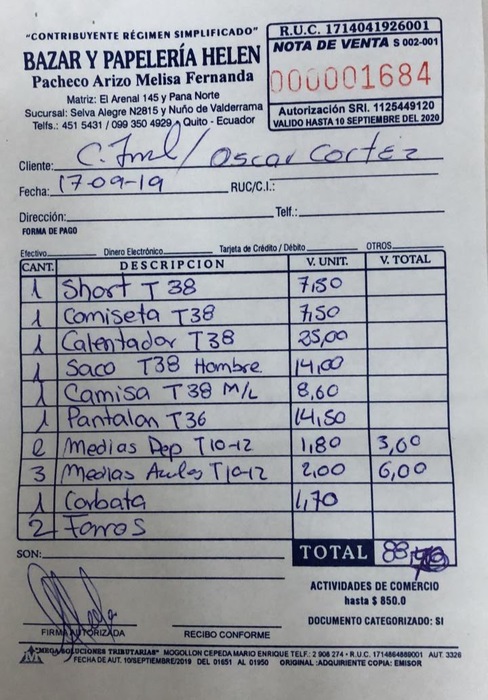 "CONTRIBUYENTE RÉGIMEN SIMPLIFICADO"
BAZAR Y PAPELERÍA HELEN
Pacheco Arizo Melisa Fernanda
Matriz: El Arenal 145 y Pana Norte
Sucursal: Selva Alegre N2815 y Nuño de Valderrama
Telfs.: 451 5431 / 099 350 4929 Quito - Ecuador
R.U.C. 1714041926001
NOTA DE VENTA S 002-001
000001684
Autorización SRI. 1125449120
VALIDO HASTA 10 SEPTIEMBRE DEL 2020
Cliente: / Oscar Cortez
Fecha: 17-09-19 RUC/C.I.:
Dirección: Telf.:
FORMA DE PAGO
Efectivo Dinero Electrónico Tarjeta de Crédito / Débito OTROS
CANT. DESCRIPCION V. UNIT. V. TOTAL
1 Short T 38 7,50
1 Camiseta T38 7,50
1 Calentador T38 25,00
1 Saco T38 Hombre 14,00
1 Camisa T38 M/L 8,60
1 Pantalon T36 14,50
2 Medias Dep T10-12 1,80 3,60
3 Medias T10-12 2,00 6,00
1 Corbata 1,70
2 Forros
SON: TOTAL 88
ACTIVIDADES DE COMERCIO
hasta $ 850.0
DOCUMENTO CATEGORIZADO: SI
FIRMA AUTORIZADA RECIBO CONFORME
"MEGA SOLUCIONES TRIBUTARIAS" MOGOLLON CEPEDA MARIO ENRIQUE TELF.: 2 908 274 - R.U.C. 1714864869001 AUT. 3326
FECHA DE AUT. 10/SEPTIEMBRE/2019 DEL 01651 AL 01950 ORIGINAL :ADQUIRIENTE COPIA: EMISOR